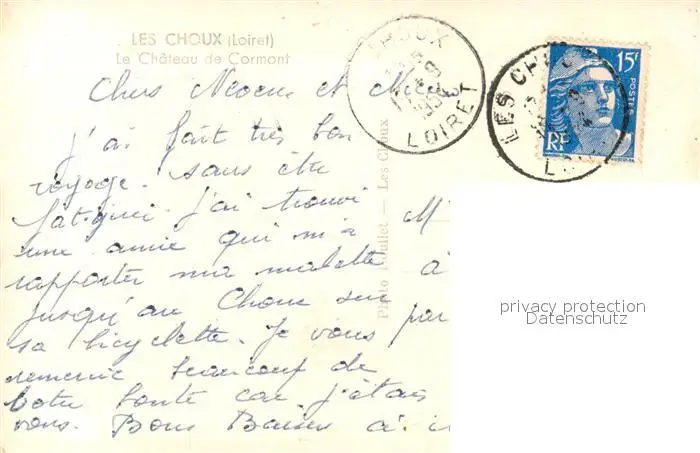 LES CHOUX (Loiret)
Le Château de Cormont
Chers Neveu et Nièce
j'ai fait très bon
voyage. sans être
fatiguée j'ai trouvé
une amie qui m'a
rapporter ma malette
jusqu'au Choux sur
sa bicyclette. Je vous
remercie beaucoup de
votre bonté car j'étais
vous. Bons Baisers à
Photo — Les Choux
CHOUX
LOIRET
LES CHOUX
15F
POSTES
RF
privacy protection
Datenschutz